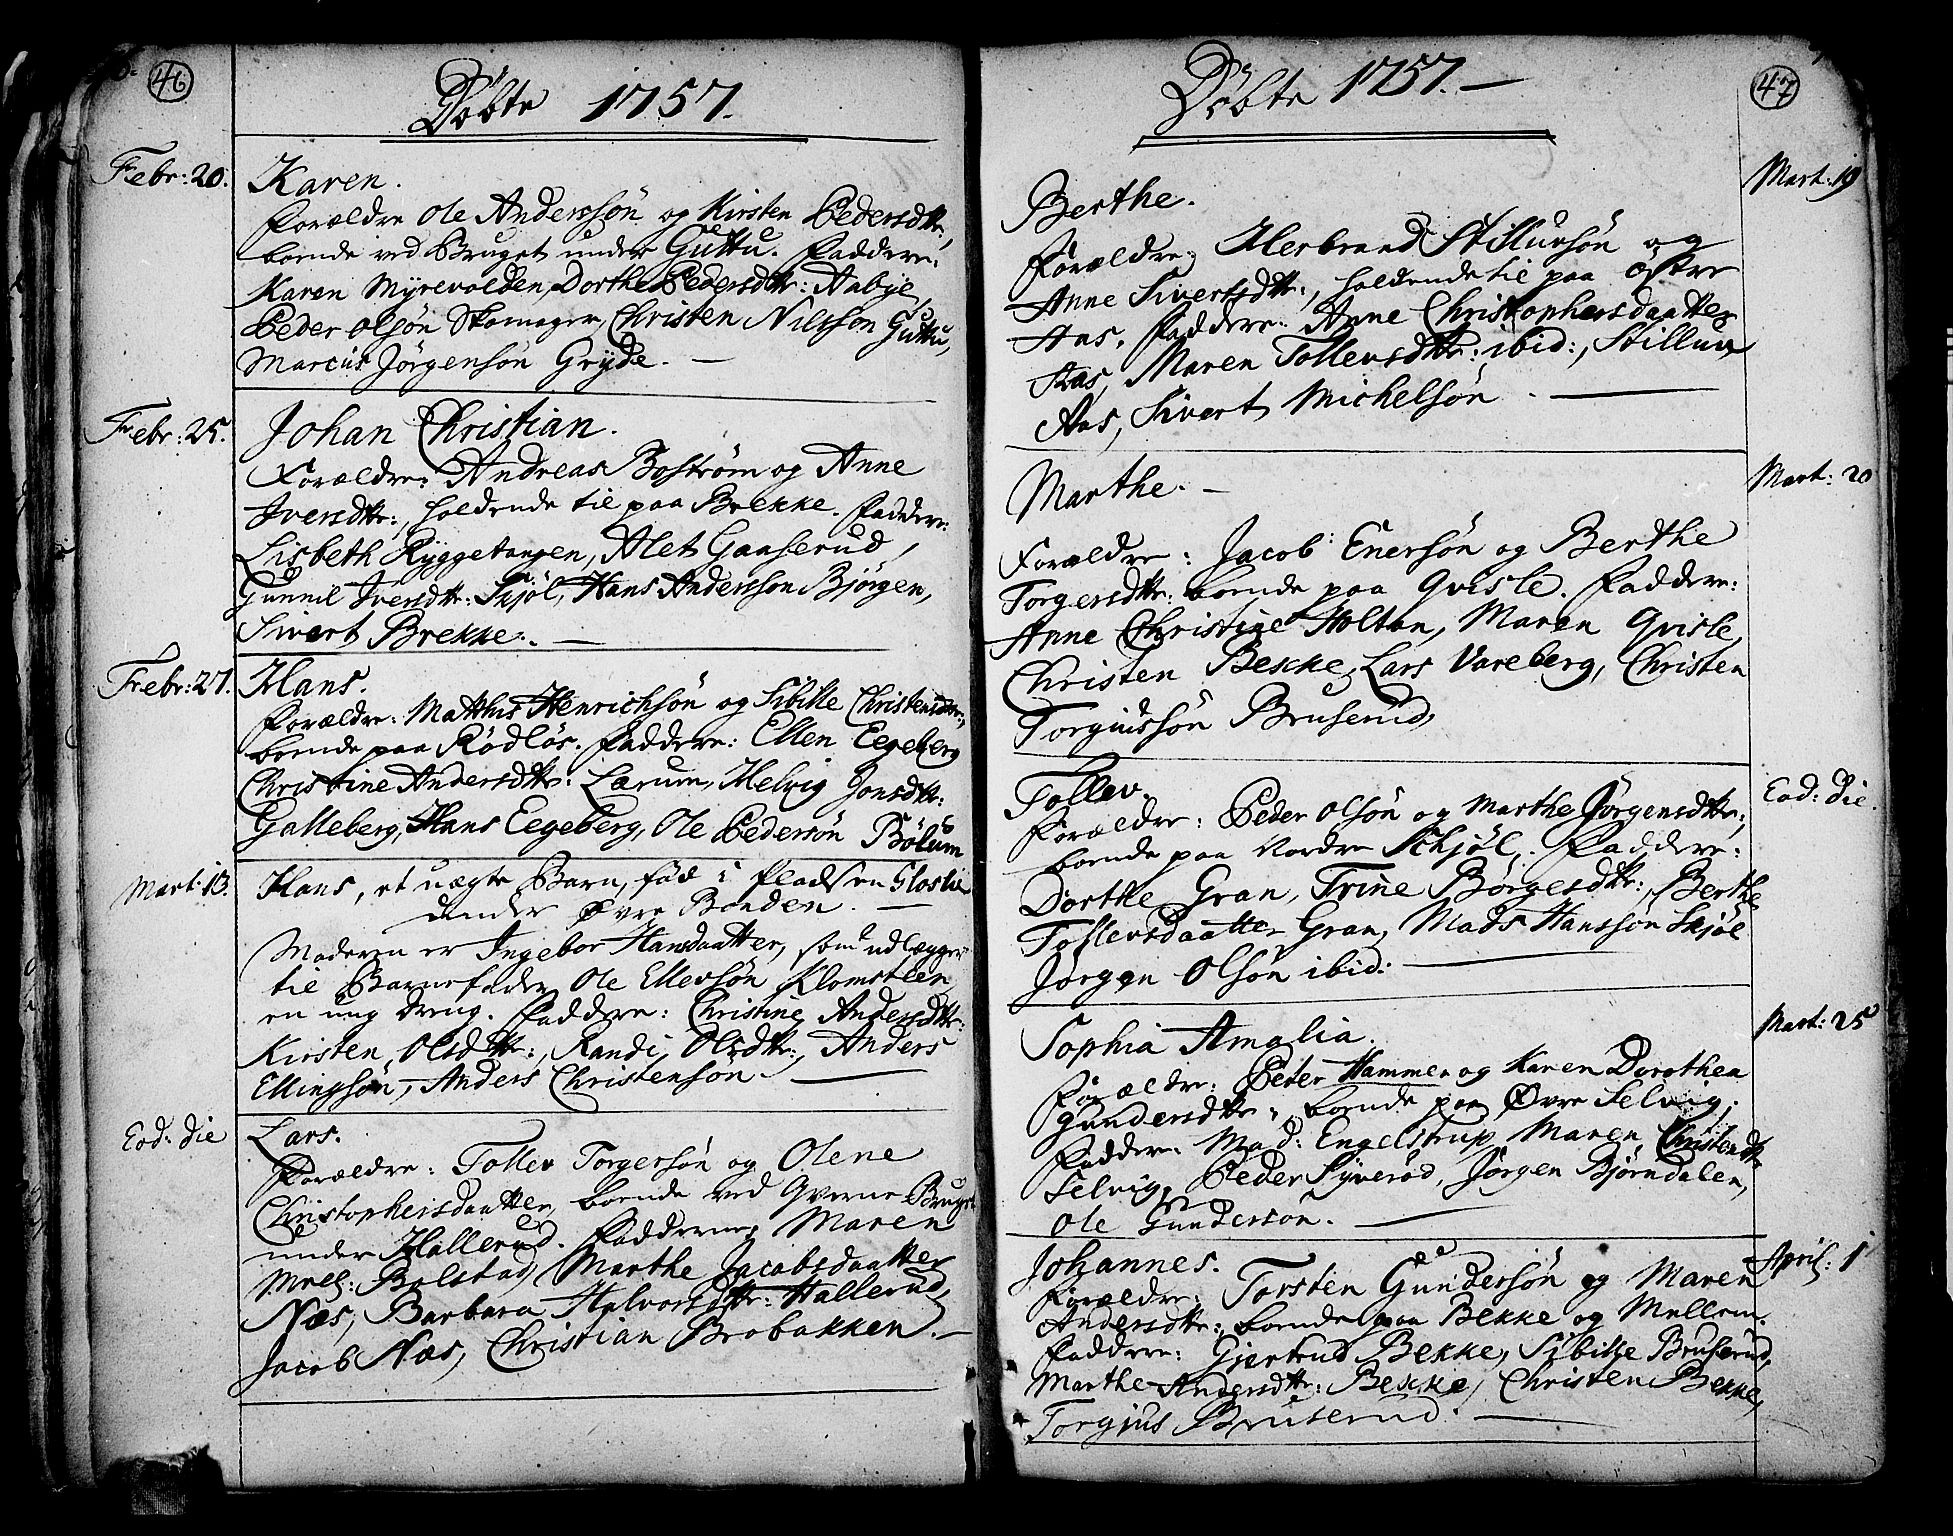 46
Döbte 1757.
Febr: 20.
Karen.
Forældre Ole Anderssön og Kirsten Pedersdtr:,
boende ved Bruget under Guttu. Faddere:
Karen Myrevolden, Dorthe Pedersdtr: Aabye,
Peder Olsön Skomager, Christen Nilsson Guttu,
Marcus Jörgensön Gryde. —
Febr: 25.
Johan Christian.
Forældre: Andreas Boström og Anne
Iversdtr:, holdende til paa Brekke. Faddere:
Lisbeth Ryggetangen, Alet Gaaserud,
Gunnil Iversdtr: Skjöl, Hans Andersson Björgen,
Sivert Brekke. —
Febr: 27.
Hans.
Forældre: Matthis Henrichsön og Sibille Christensdtr:,
boende paa Rödlös. Faddere: Ellen Eegeberg
Christine Andersdtr: Lærum, Helvig Jonsdtr:
Galleberg, Hans Eegeberg, Ole Pedersön Bölum
Mart: 13.
Hans, et uægte Barn, föd i Pladsen Glostie
under Övre Bonden. —
Moderen er Ingebor Hansdaatter, som udlægger
til Barnefader Ole Ellevsön Klomsteen,
en ung Dreng. Faddere: Christine Andersdtr:
Kirsten Olsdtr:, Randi Olsdtr:, Anders
Ellingsön, Anders Christenson. —
Eod: die
Lars.
Forældre: Tollev Torgersön og Olene
Christophersdaatter, boende ved Qverne-Bruget
under Hallerud. Fadderne, Maren
Mrel: Bolstad, Marthe Jacobsdaatter
Næs, Barbara Halvorsdtr: Hallerud,
Jacob Næs, Christian Brobakken. —
47
Döbte 1757. —
Mart: 19
Berthe.
Forældre: Herbrand Stillufsön og
Anne Sivertsdtr:, holdende til paa östre
Aas. Faddere: Anne Christophersdaatter
Aas, Maren Tollevsdtr: ibid:, Stilluv
Aas, Sivert Michelsön. —
Mart: 20
Marthe. —
Forældre: Jacob Enersön og Berthe
Torgersdtr: boende paa Qvisle. Faddere:
Anne Christine Holtan, Maren Qvisle,
Christen Bekke, Lars Vareberg, Christen
Torgiussön Bruserud,
Eod: die.
Tollev.
Forældre: Peder Olsön og Marthe Jörgensdtr:,
boende paa Nordre Schjöl. Faddere:
Dorthe Gran, Trine Börgesdtr:, Berthe
Tollevsdaatter Gran, Mads Hanssön Skjöl
Jörgen Olsön ibid: —
Mart: 25
Sophia Amalia.
Forældre: Peder Hammer og Karen Dorothea
Gundersdtr:, boende paa Övre Selvig,
Faddere: Mad: Engelstrup, Maren Christensdtr:
Selvig, Peder Syveröd, Jörgen Björndalen,
Ole Gunderson. —
April: 1
Johannes.
Forældre: Torsten Gundersön og Maren
Andersdtr:, boende paa Bekke og Mellem.
Faddere: Gjertrud Bekke, Sibille Bruserud,
Marthe Andersdtr: Bekke, Christen Bekke,
Torgius Bruserud. —